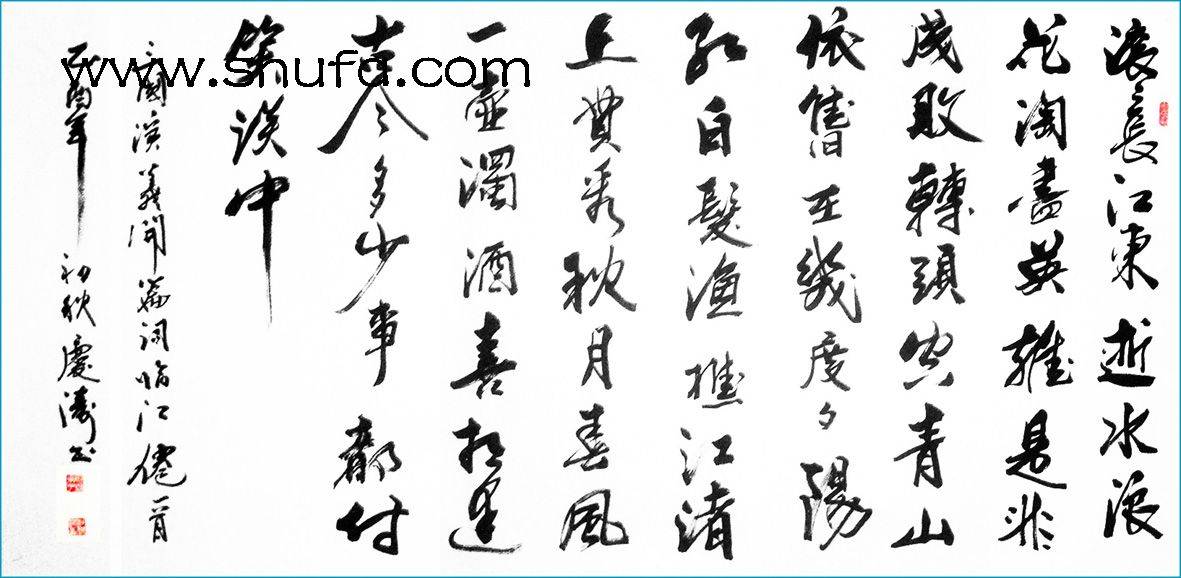 滚々長江東逝水浪
花淘盡英雄是非
成敗轉頭空青山
依舊在幾度夕陽
紅白髮漁樵江渚
上看秋月春風
一壺濁酒喜相逢
古今多少事都付
笑談中
三國演義開篇詞临江僊一首
酉年初秋慶濤书
www.shufa.com